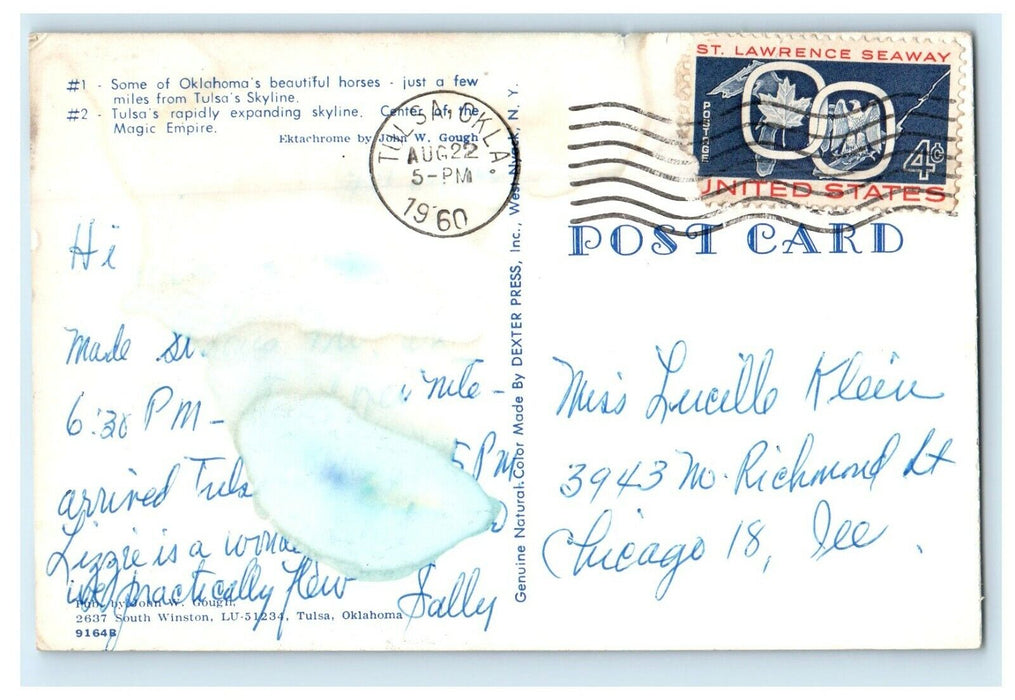 #1 - Some of Oklahoma's beautiful horses - just a few
miles from Tulsa's Skyline.
#2 - Tulsa's rapidly expanding skyline. Center of the
Magic Empire.
Ektachrome by John W. Gough
TULSA, OKLA.
AUG 22
5-PM
1960
ST. LAWRENCE SEAWAY
POSTAGE
4¢
UNITED STATES
POST CARD
Genuine Natural Color Made By DEXTER PRESS, Inc., West Nyack, N. Y.
Hi
Made
nite -
6:30 PM -
arrived 5 PM
Lizzie is a
we practically flew
Sally
Miss Lucille Klein
3943 N. Richmond St
Chicago 18, Ill.
Pub. by John W. Gough,
2637 South Winston, LU-51234, Tulsa, Oklahoma
9164B